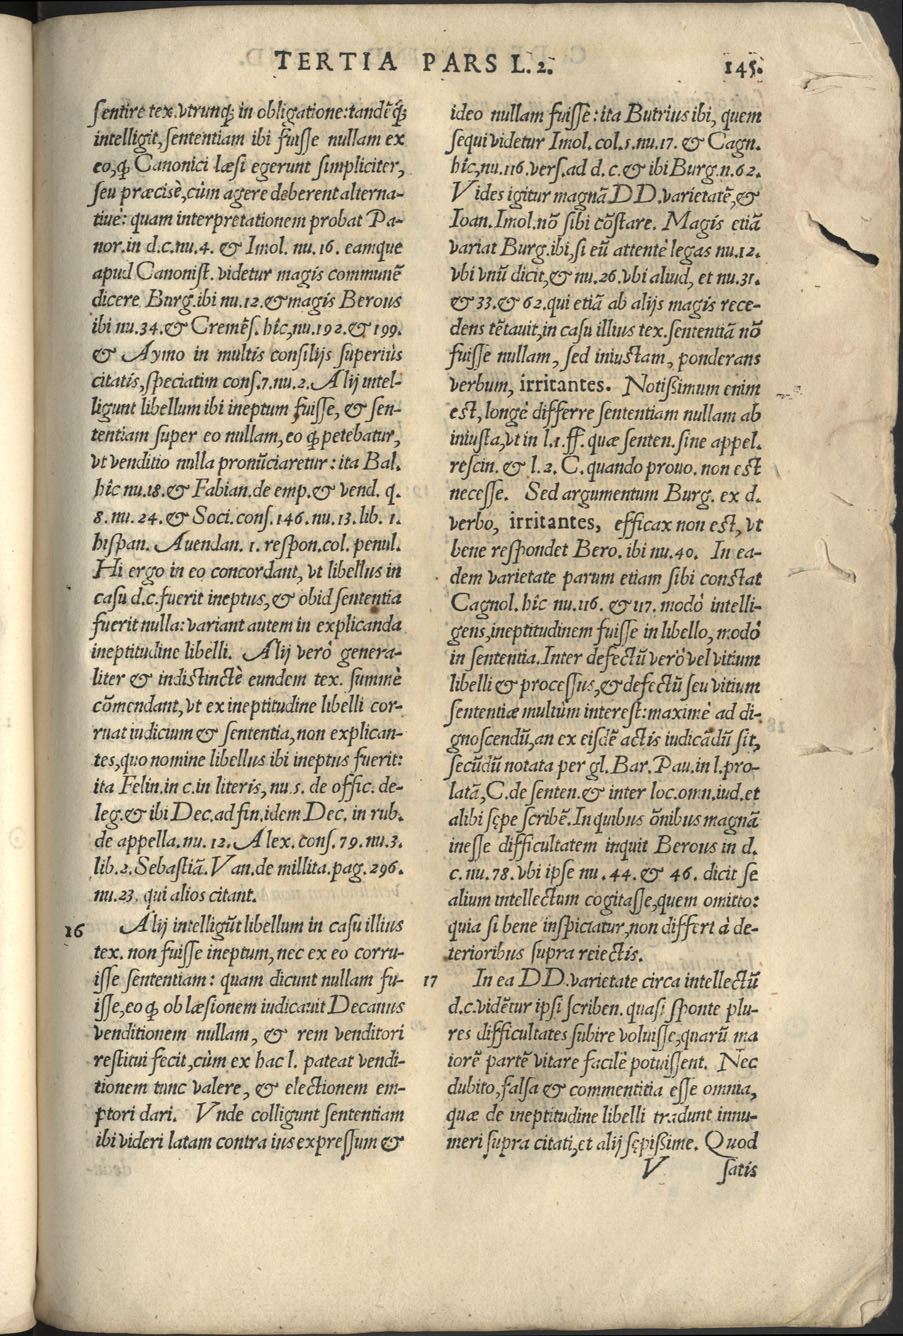 TERTIA PARS L. 2. 145.
sentire tex. vtrunq; in obligatione: tandẽ q̃
intelligit, sententiam ibi fuisse nullam ex
eo, q̃ Canonici læsi egerunt simpliciter,
seu præcisè, cùm agere deberent alterna-
tiuè: quam interpretationem probat Pa-
nor. in d.c. nu. 4. & Imol. nu. 16. eamque
apud Canonist. videtur magis communẽ
dicere Burg. ibi nu. 12. & magis Berous
ibi nu. 34. & Cremẽs. hîc, nu. 192. & 199.
& Aymo in multis consilijs superiùs
citatis, speciatim cons. 7. nu. 2. Alij intel-
ligunt libellum ibi ineptum fuisse, & sen-
tentiam super eo nullam, eo q̃ petebatur,
vt venditio nulla pronũciaretur: ita Bal.
hîc nu. 18. & Fabian. de emp. & vend. q.
8. nu. 24. & Soci. cons. 146. nu. 13. lib. 1.
hispan. Auendan. 1. respon. col. penul.
Hi ergo in eo concordant, vt libellus in
casu d.c. fuerit ineptus, & obid sententia
fuerit nulla: variant autem in explicanda
ineptitudine libelli. Alij verò genera-
liter & indistinctè eundem tex. summè
cõmendant, vt ex ineptitudine libelli cor-
ruat iudicium & sententia, non explican-
tes, quo nomine libellus ibi ineptus fuerit:
ita Felin. in c. in literis, nu. 5. de offic. de-
leg. & ibi Dec. ad fin. idem Dec. in rub.
de appella. nu. 12. Alex. cons. 79. nu. 3.
lib. 2. Sebastiã. Van. de millita. pag. 296.
nu. 23. qui alios citant.
16 Alij intelligũt libellum in casu illius
tex. non fuisse ineptum, nec ex eo corru-
isse sententiam: quam dicunt nullam fu-
isse, eo q̃ ob læsionem iudicauit Decanus
venditionem nullam, & rem venditori
restitui fecit, cùm ex hac l. pateat vendi-
tionem tunc valere, & electionem em-
ptori dari. Vnde colligunt sententiam
ibi videri latam contra ius expressum &
ideo nullam fuisse: ita Butrius ibi, quem
sequi videtur Imol. col. 5. nu. 17. & Cagn.
hîc, nu. 116. vers. ad d. c. & ibi Burg. n. 62.
Vides igitur magnã DD. varietatẽ, &
Ioan. Imol. nõ sibi cõstare. Magis etiã
variat Burg. ibi, si eũ attentè legas nu. 12.
vbi vnũ dicit, & nu. 26. vbi aliud, et nu. 31.
& 33. & 62. qui etiã ab alijs magis rece-
dens tẽtauit, in casu illius tex. sententiã nõ
fuisse nullam, sed iniustam, ponderans
verbum, irritantes. Notißimum enim
est, longè differre sententiam nullam ab
iniusta, vt in l. 1. ff. quæ senten. sine appel.
rescin. & l. 2. C. quando prouo. non est
necesse. Sed argumentum Burg. ex d.
verbo, irritantes, efficax non est, vt
bene respondet Bero. ibi nu. 40. In ea-
dem varietate parum etiam sibi constat
Cagnol. hîc nu. 116. & 117. modò intelli-
gens, ineptitudinem fuisse in libello, modò
in sententia. Inter defectũ verò vel vitium
libelli & processus, & defectũ seu vitium
sententiæ multùm interest: maximè ad di-
gnoscendũ, an ex eisdẽ actis iudicãdũ sit,
secũdũ notata per gl. Bar. Pau. in l. pro-
latã, C. de senten. & inter loc. omn. iud. et
alibi sępe scribẽ. In quibus õnibus magnã
inesse difficultatem inquit Berous in d.
c. nu. 78. vbi ipse nu. 44. & 46. dicit se
alium intellectum cogitasse, quem omitto:
quia si bene inspiciatur, non differt à de-
terioribus supra reiectis.
17 In ea DD. varietate circa intellectũ
d.c. vidẽtur ipsi scriben. quasi sponte plu-
res difficultates subire voluisse, quarũ ma
iorẽ partẽ vitare facilè potuissent. Nec
dubito, falsa & commentitia esse omnia,
quæ de ineptitudine libelli tradunt innu-
meri supra citati, et alij sępißime. Quod
V satis